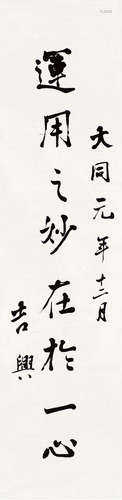 大同元年十二月
運用之妙在於一心
吉興